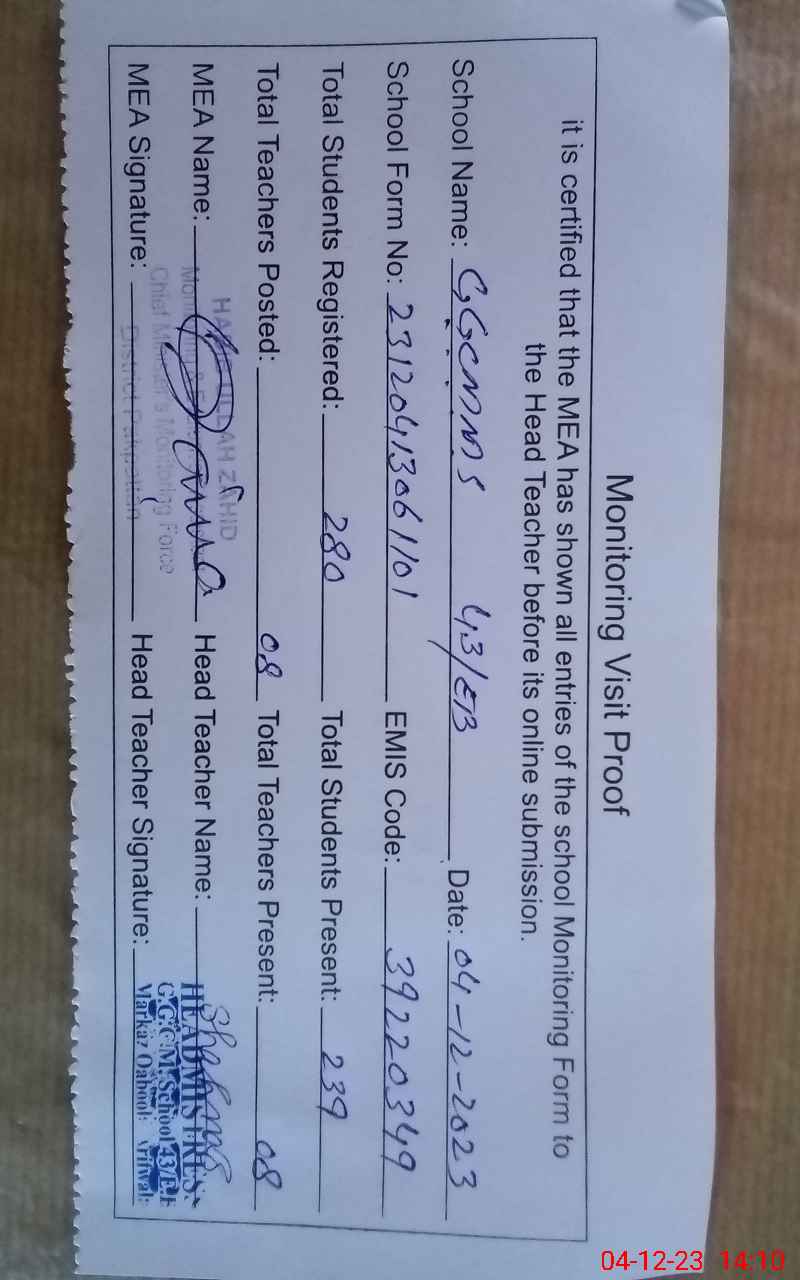 Monitoring Visit Proof
it is certified that the MEA has shown all entries of the school Monitoring Form to
the Head Teacher before its online submission.
School Name: G.G.C.M.M.S 43/EB Date: 04-12-2023
School Form No: 23120413061101 EMIS Code: 39220349
Total Students Registered: 280 Total Students Present: 239
Total Teachers Posted: 08 Total Teachers Present: 08
MEA Name: Head Teacher Name:
MEA Signature: Head Teacher Signature:
ZAHID
Chief Minister's Monitoring Force
District Pakpattan
HEADMISTRESS
G.G.C.M. School 43/E.B
Markaz Qaboola Arifwala
04-12-23 14:10